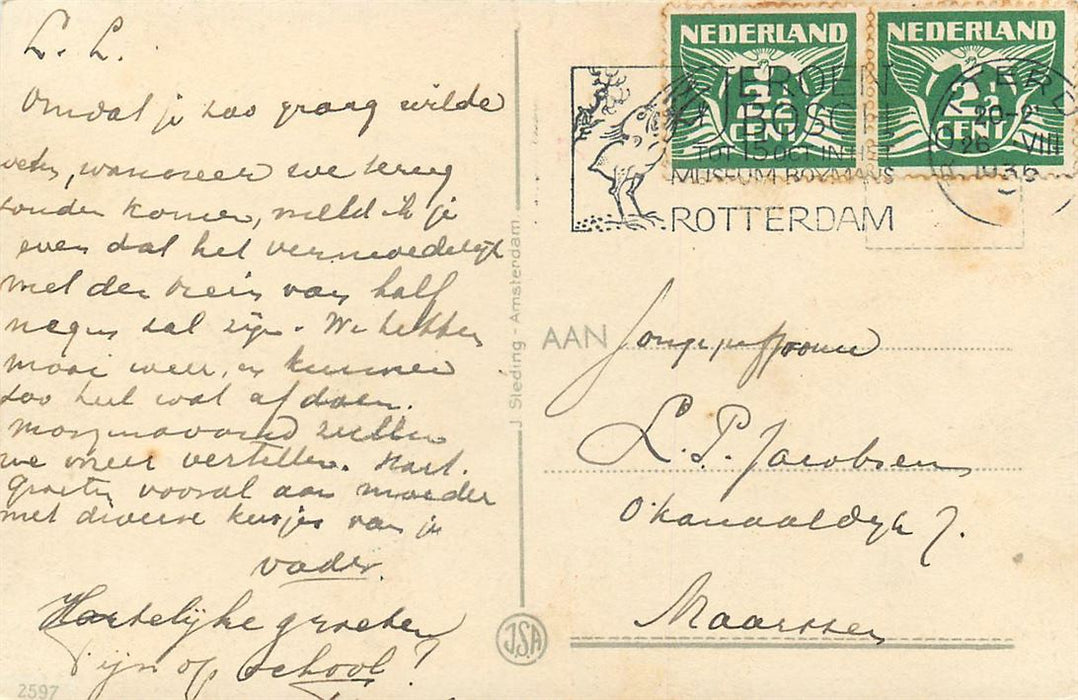 L. L.
Omdat je zoo graag wilde
weten, wanneer we terug
zouden komen, meld ik je
even dat het vermoedelijk
met den trein van half
negen zal zijn. We hebben
mooi weer, en kunnen
zoo heel wat af doen.
Morgenavond zullen
we meer vertellen. Hart.
groeten vooral aan moeder
met diverse kusjes van je
vader.
Hartelijke groeten
Fijn op school?
2597
J. Sleding - Amsterdam
JSA
NEDERLAND
2½
CENT
NEDERLAND
2½
CENT
JEROEN
BOSCH
TOT 15 OCT. IN HET
MUSEUM BOYMANS
ROTTERDAM
20-2
26 VIII
1936
AAN Jongejuffrouw
L. P. Jacobsen
Kanaaldijk 7.
Maarssen